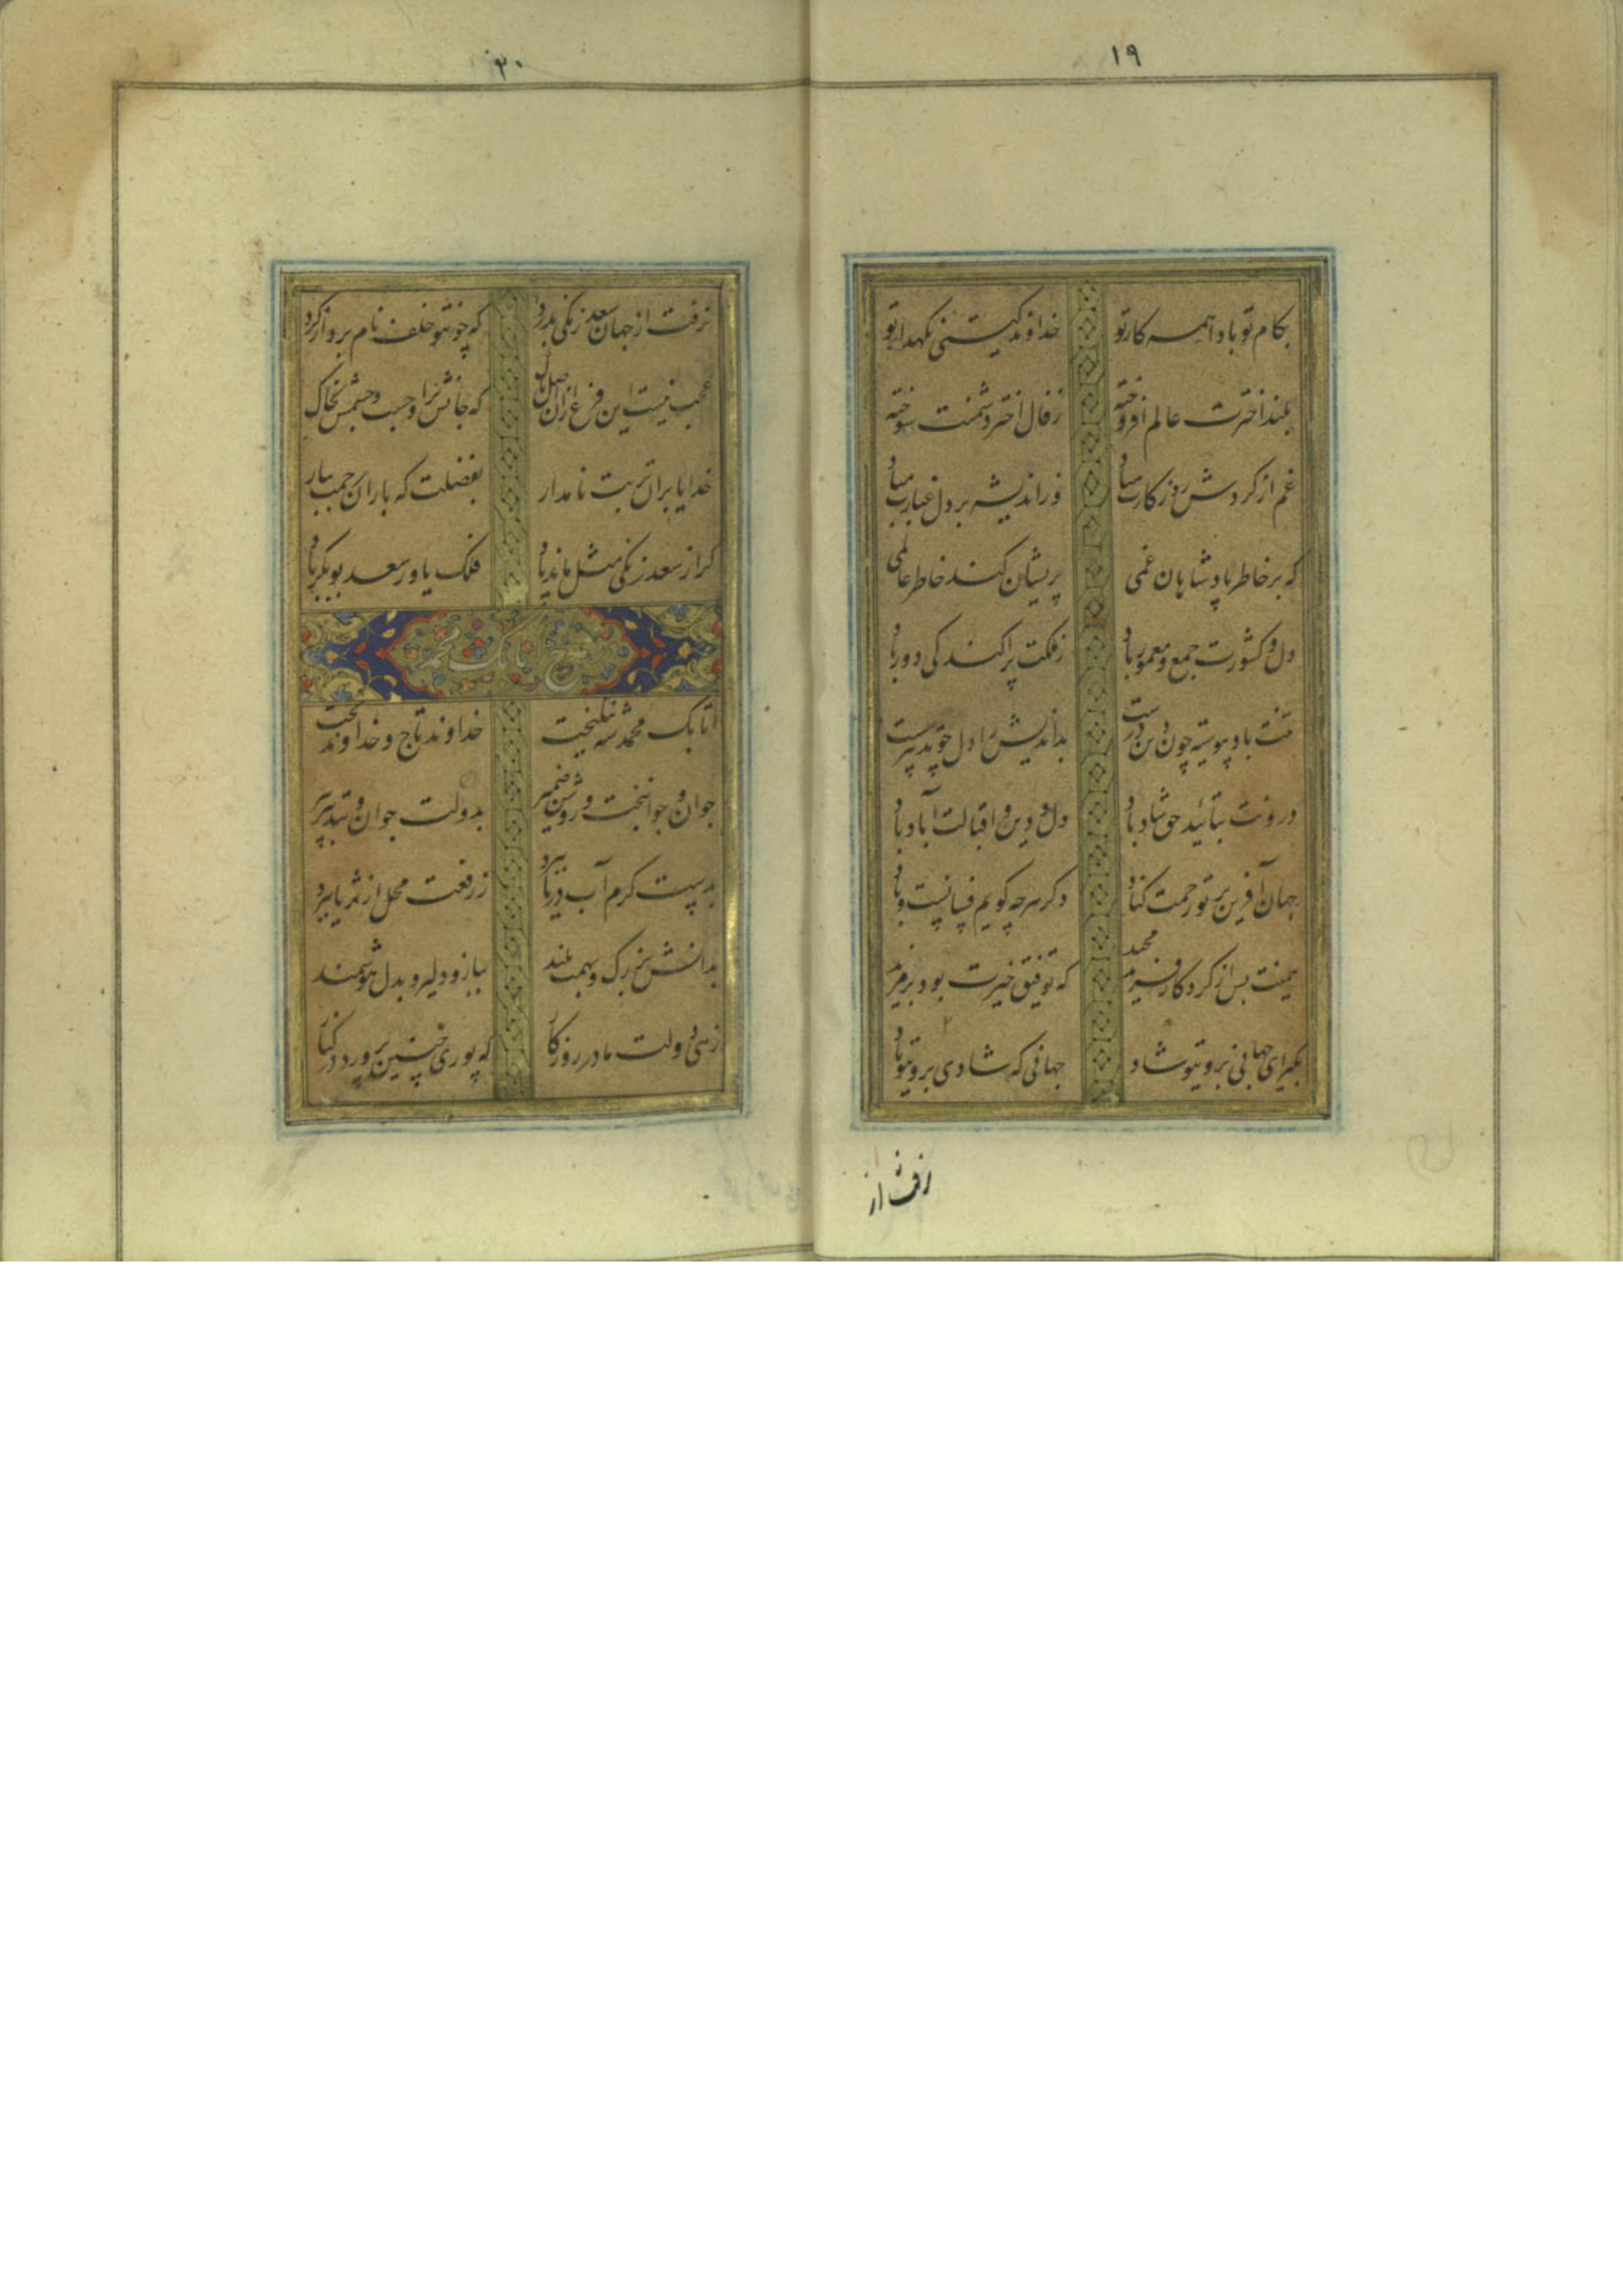 ۱۹
بکام تو باد اهمه کار تو خداوند گیتی نگهدار تو
بلند اخترت عالم افروخته زفال اختر دشمنت سوخته
غم از کردش روزکارت مباد وز اندیشه بر دل غبارت مباد
که بر خاطر پادشاهان غمی پریشان کند خاطر عالمی
دل و کشورت جمع و معمور باد زملکت پراکندکی دور باد
تنت باد پیوسته چون دین درست بداندیش را دل چو تدبیر سست
درونت بتائید حق شاد باد دل و دین و اقبالت آباد باد
جهان آفرین بر تو رحمت کناد دکر هرچه کویم فسانیست و باد
همینت بس از کردکار مجید که توفیق خیرت بود بر مزید
جهانی که شادی برو تو باد
رفت از
۲۰
نرفت از جهان سعد زنکی بدرد که چون تو خلف نام بردار کرد
عجب نیست این فرع ازان اصل پاک که جانش بر اوجست و جسمش بخاک
خدایا بران تربت نامدار بفضلت که باران رحمت ببار
کر از سعد زنکی مثل ماند یاد فلک یاور سعد بوبکر باد
مدح اتابک محمد
اتابک محمد شه نیکبخت خداوند تاج و خداوند تخت
جوان و جوانبخت و روشن ضمیر بدولت جوان و بتدبیر پیر
کرم آب دریا ببرد ز رفعت محل از ثریا ببرد
بدانش بزرک و بهمت بلند ببازو دلیر و بدل هوشمند
زهی دولت مادر روزکار که پوری چنین پرورد در کنار